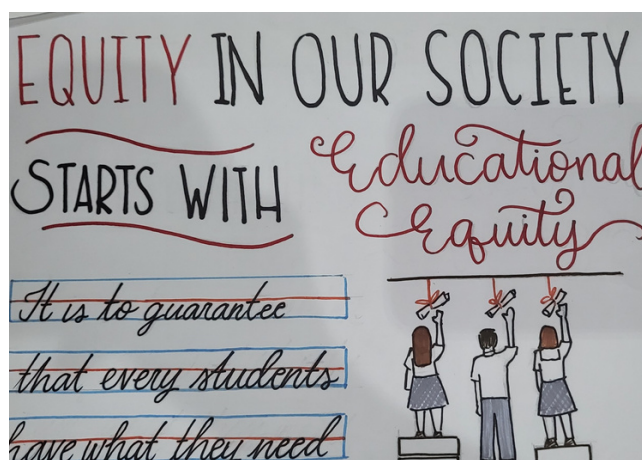 EQUITY IN OUR SOCIETY
STARTS WITH
Educational
Equity
It is to guarantee
that every students
have what they need